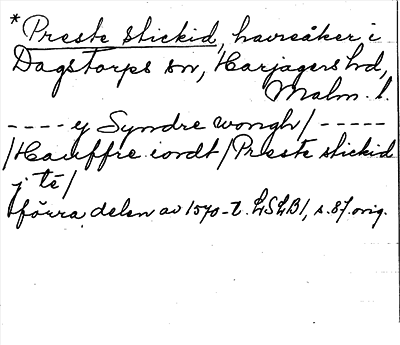 * Preste stickid, havreåker i
Dagstorps sn, Harjagers hd,
Malm. l.
---- ej Syndre wongh / -----
/ Hauffre iordt / Preste stickid
j té /
förra delen av 1570-t. LSLB1, s. 87. orig.